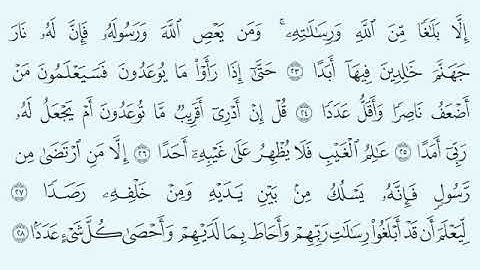 إِلَّا بَلَٰغًا مِّنَ ٱللَّهِ وَرِسَٰلَٰتِهِۦ ۚ وَمَن يَعْصِ ٱللَّهَ وَرَسُولَهُۥ فَإِنَّ لَهُۥ نَارَ
جَهَنَّمَ خَٰلِدِينَ فِيهَآ أَبَدًا ٢٣ حَتَّىٰٓ إِذَا رَأَوْا۟ مَا يُوعَدُونَ فَسَيَعْلَمُونَ مَنْ
أَضْعَفُ نَاصِرًا وَأَقَلُّ عَدَدًا ٢٤ قُلْ إِنْ أَدْرِىٓ أَقَرِيبٌ مَّا تُوعَدُونَ أَمْ يَجْعَلُ لَهُۥ
رَبِّىٓ أَمَدًا ٢٥ عَٰلِمُ ٱلْغَيْبِ فَلَا يُظْهِرُ عَلَىٰ غَيْبِهِۦٓ أَحَدًا ٢٦ إِلَّا مَنِ ٱرْتَضَىٰ مِن
رَّسُولٍ فَإِنَّهُۥ يَسْلُكُ مِنۢ بَيْنِ يَدَيْهِ وَمِنْ خَلْفِهِۦ رَصَدًا ٢٧
لِّيَعْلَمَ أَن قَدْ أَبْلَغُوا۟ رِسَٰلَٰتِ رَبِّهِمْ وَأَحَاطَ بِمَا لَدَيْهِمْ وَأَحْصَىٰ كُلَّ شَىْءٍ عَدَدًۢا ٢٨